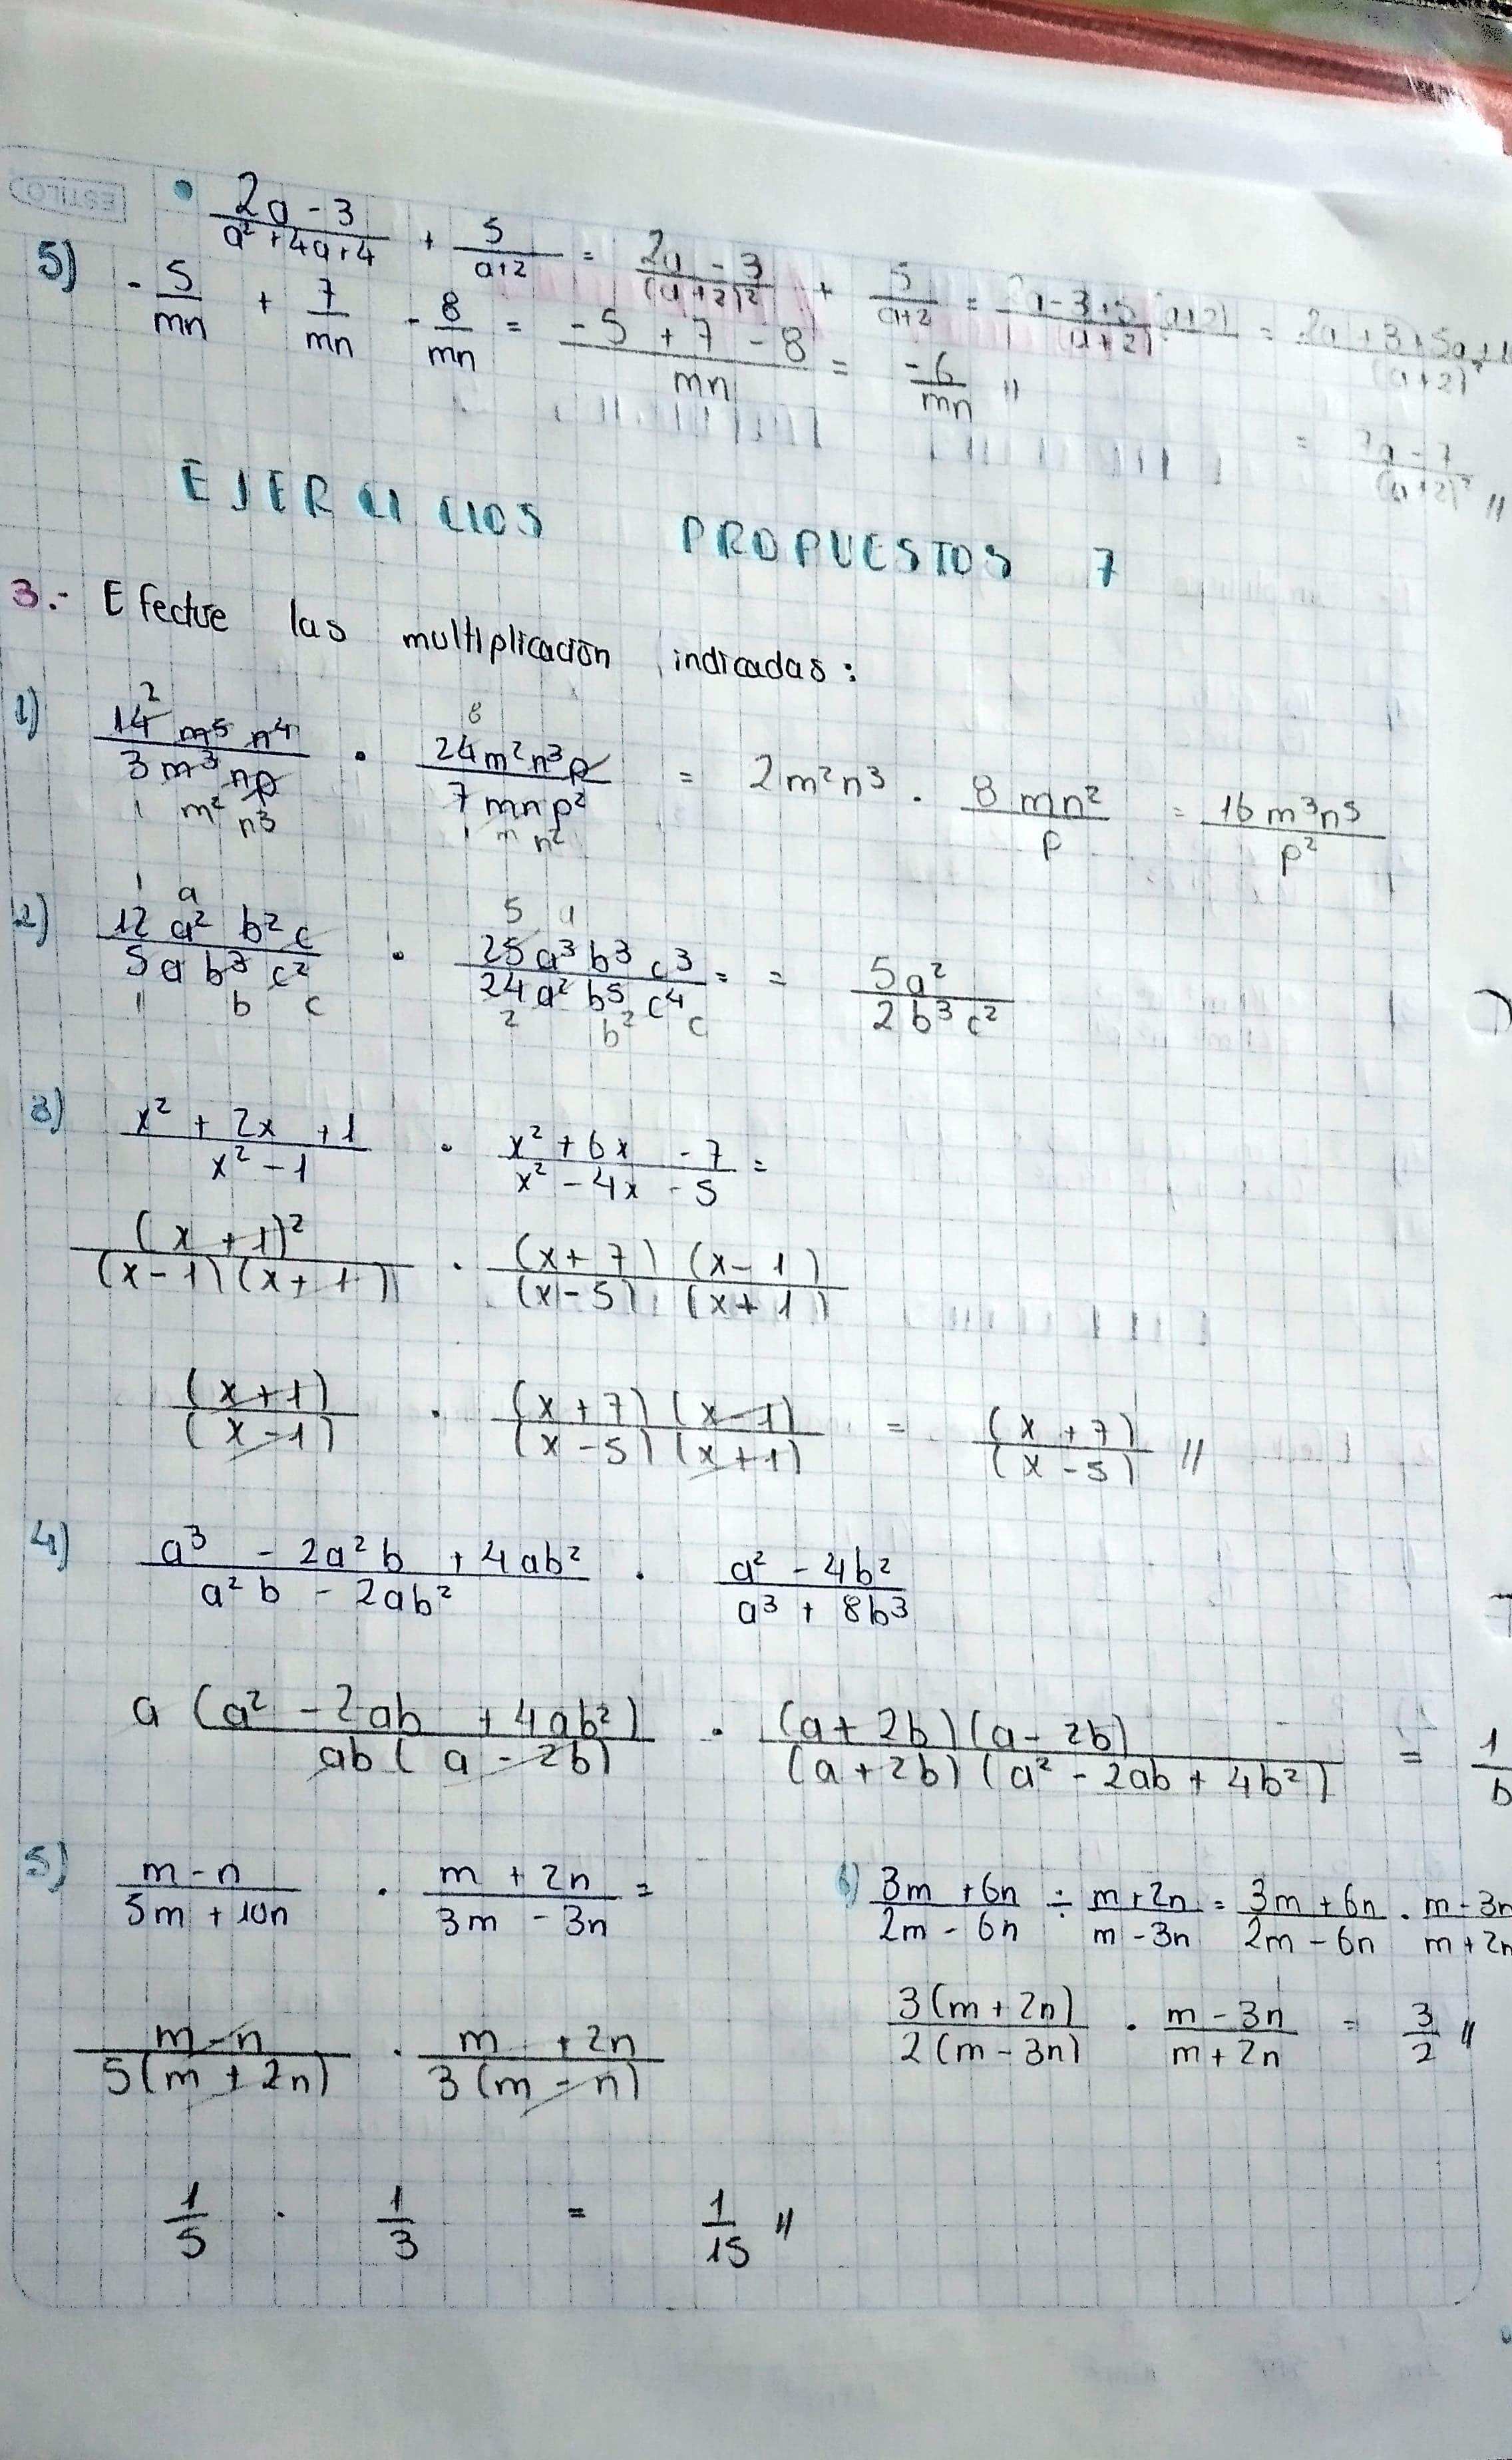 ESTILO
• (2a - 3)/(a² + 4a + 4) + 5/(a+2) = (2a - 3)/(a+2)² + 5/(a+2) = (2a - 3 + 5(a+2))/(a+2)² = (2a + 3 + 5a + 1
= (7a - 7)/(a+2)² //
5) - 5/mn + 7/mn - 8/mn = (-5 + 7 - 8)/mn = -6/mn //
EJERCICIOS PROPUESTOS 7
3.- Efectue las multiplicación indicadas:
1) 14m⁵n⁴/3m³np · 24m²n³p/7mnp² = 2m²n³ · 8mn²/p = 16m³n⁵/p²
2) 12a²b²c/5ab³c² · 25a³b³c³/24a²b⁵c⁴ = = 5a²/2b³c²
3) (x² + 2x + 1)/(x² - 1) · (x² + 6x - 7)/(x² - 4x - 5) =
(x + 1)²/(x - 1)(x + 1) · (x + 7)(x - 1)/(x - 5)(x + 1)
(x + 1)/(x - 1) · (x + 7)(x - 1)/(x - 5)(x + 1) = (x + 7)/(x - 5) //
4) (a³ - 2a²b + 4ab²)/(a²b - 2ab²) · (a² - 4b²)/(a³ + 8b³)
a(a² - 2ab + 4ab²)/ab(a - 2b) · (a + 2b)(a - 2b)/(a + 2b)(a² - 2ab + 4b²) = 1/b
5) (m - n)/(5m + 10n) · (m + 2n)/(3m - 3n) =
(m - n)/5(m + 2n) · (m + 2n)/3(m - n)
1/5 · 1/3 = 1/15 //
6) (3m + 6n)/(2m - 6n) ÷ (m + 2n)/(m - 3n) = (3m + 6n)/(2m - 6n) · (m - 3n)/(m + 2n)
3(m + 2n)/2(m - 3n) · (m - 3n)/(m + 2n) = 3/2 //